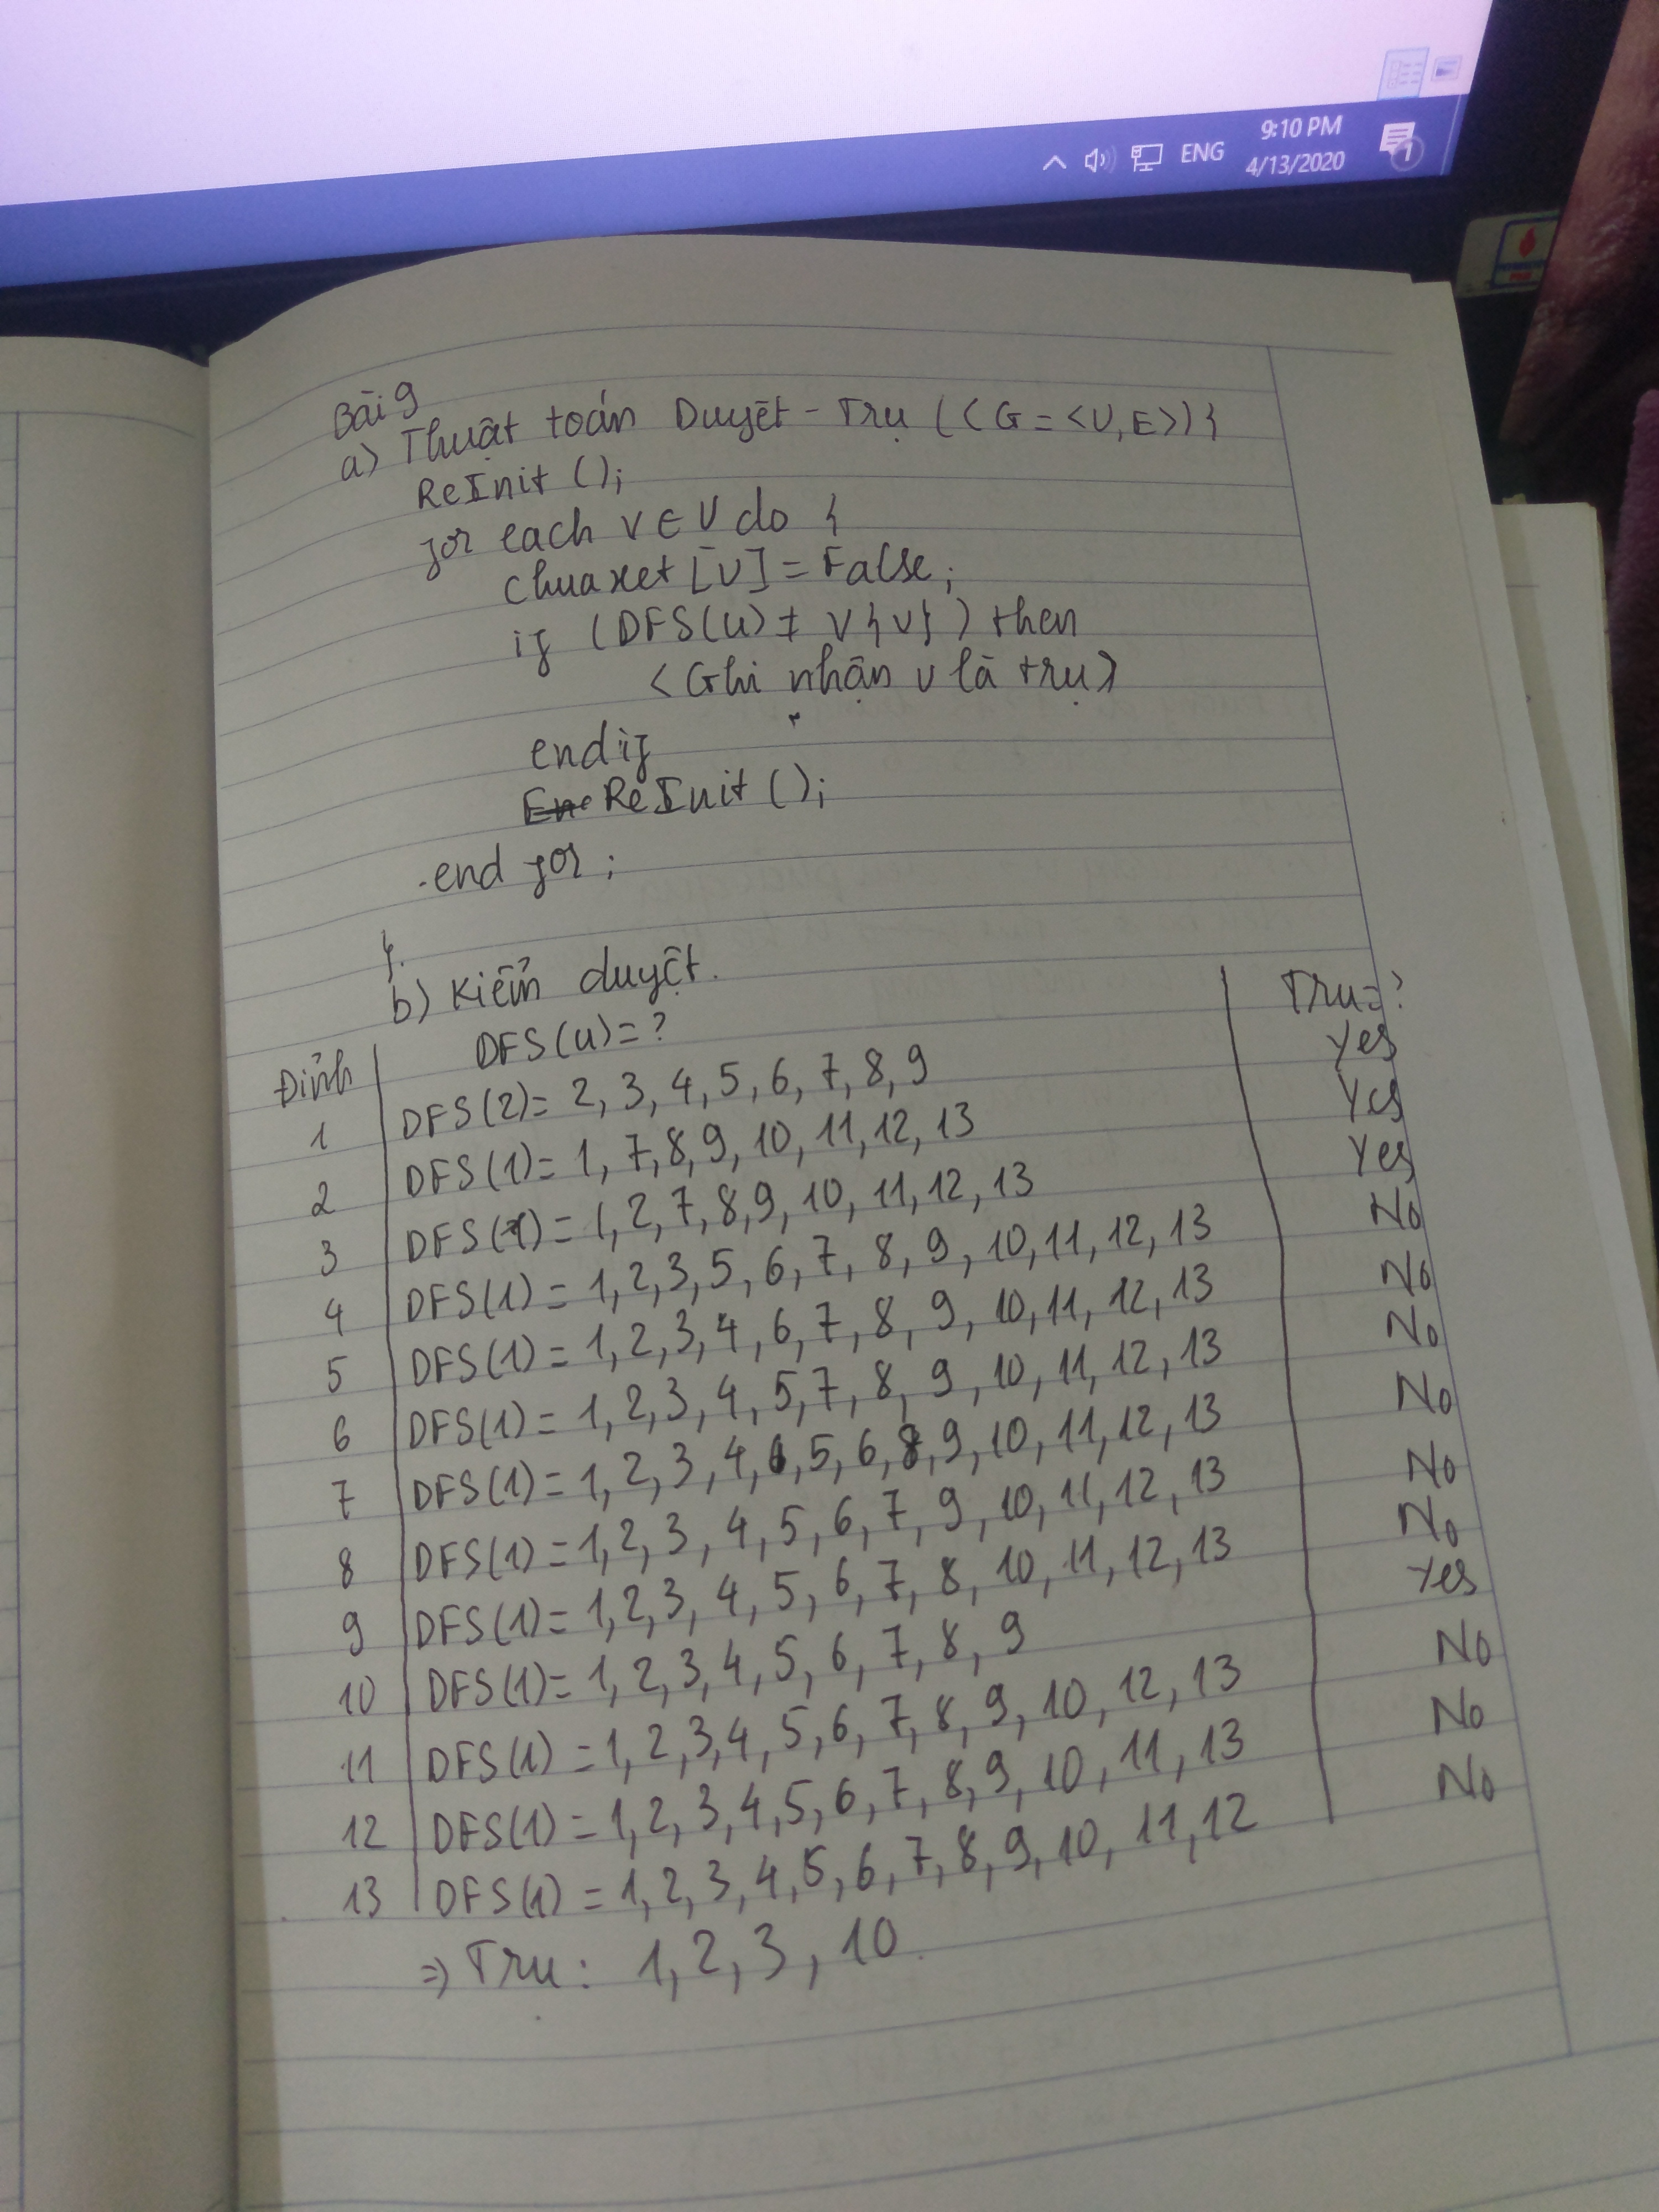 9:10 PM
ENG
4/13/2020
1
Bài 9
a) Thuật toán Duyệt - Trụ ( (G = <V, E>) {
ReInit ();
for each v ∈ V do {
chuaxet [v] = False;
if (DFS(u) ≠ V{v} ) then
<Ghi nhận v là trụ>
endif
ReInit ();
end for ;
}.
b) Kiểm duyệt.
Đỉnh DFS(u)=? Trụ=?
1 DFS(2)= 2, 3, 4, 5, 6, 7, 8, 9 Yes
2 DFS(1)= 1, 7, 8, 9, 10, 11, 12, 13 Yes
3 DFS(1)= 1, 2, 7, 8, 9, 10, 11, 12, 13 Yes
4 DFS(1) = 1, 2, 3, 5, 6, 7, 8, 9, 10, 11, 12, 13 No
5 DFS(1) = 1, 2, 3, 4, 6, 7, 8, 9, 10, 11, 12, 13 No
6 DFS(1) = 1, 2, 3, 4, 5, 7, 8, 9, 10, 11, 12, 13 No
7 DFS(1) = 1, 2, 3, 4, 5, 6, 8, 9, 10, 11, 12, 13 No
8 DFS(1) = 1, 2, 3, 4, 5, 6, 7, 9, 10, 11, 12, 13 No
9 DFS(1) = 1, 2, 3, 4, 5, 6, 7, 8, 10, 11, 12, 13 No
10 DFS(1) = 1, 2, 3, 4, 5, 6, 7, 8, 9 Yes
11 DFS(1) = 1, 2, 3, 4, 5, 6, 7, 8, 9, 10, 12, 13 No
12 DFS(1) = 1, 2, 3, 4, 5, 6, 7, 8, 9, 10, 11, 13 No
13 DFS(1) = 1, 2, 3, 4, 5, 6, 7, 8, 9, 10, 11, 12 No
=> Trụ : 1, 2, 3, 10.